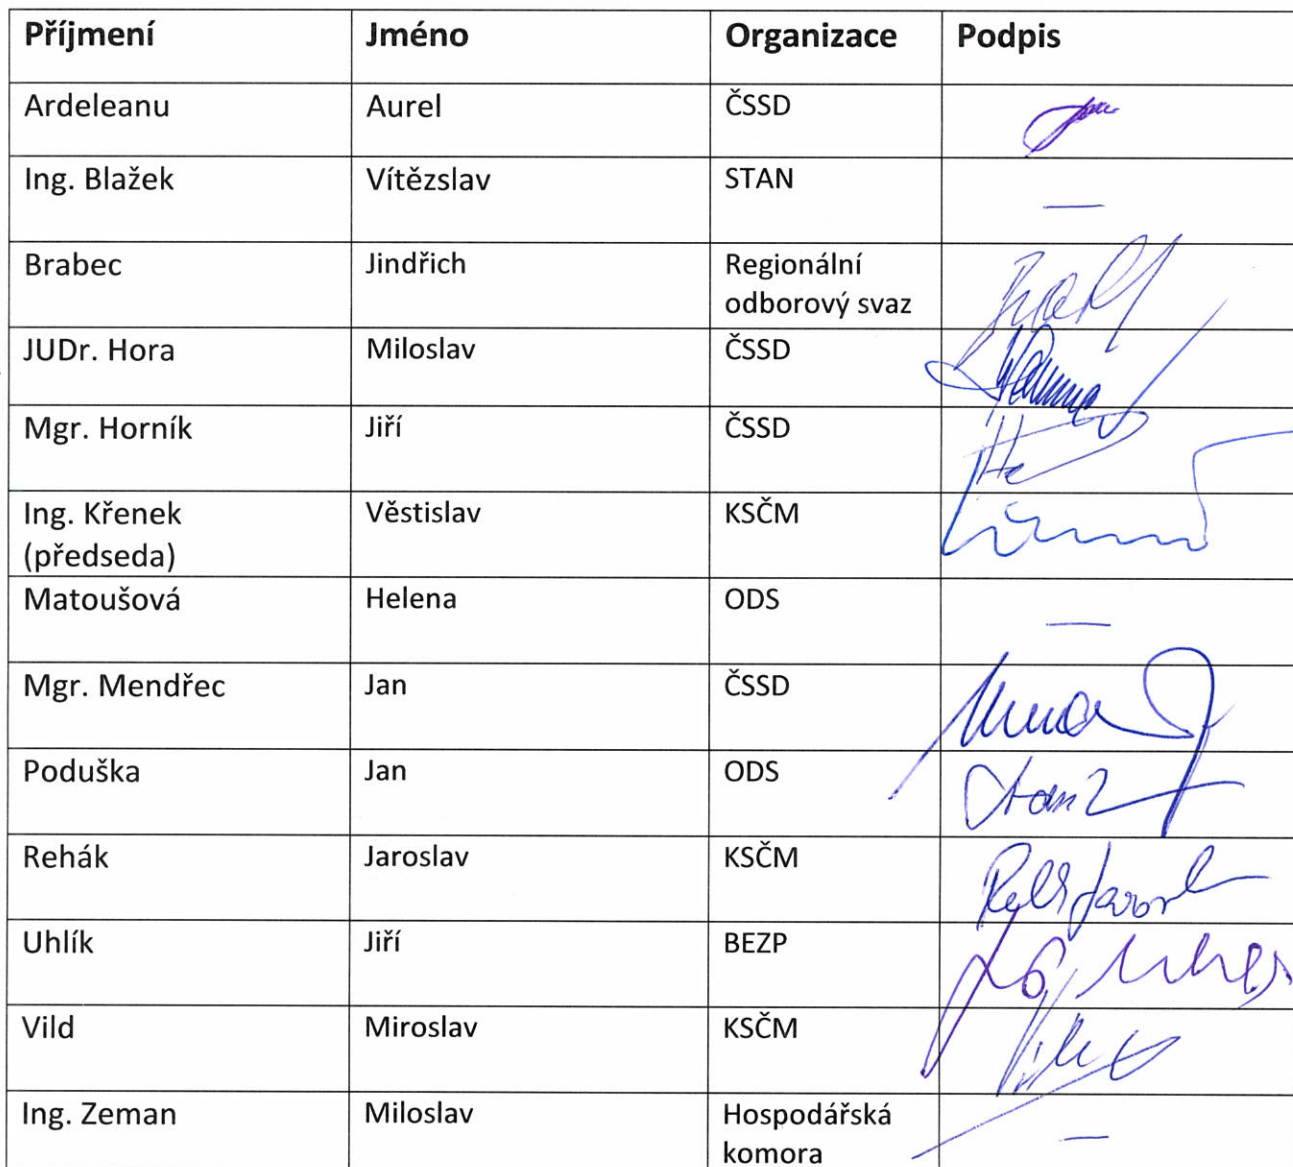 Příjmení Jméno Organizace Podpis
Ardeleanu Aurel ČSSD
Ing. Blažek Vítězslav STAN —
Brabec Jindřich Regionální
odborový svaz
JUDr. Hora Miloslav ČSSD
Mgr. Horník Jiří ČSSD
Ing. Křenek Věstislav KSČM
(předseda)
Matoušová Helena ODS —
Mgr. Mendřec Jan ČSSD
Poduška Jan ODS
Rehák Jaroslav KSČM
Uhlík Jiří BEZP
Vild Miroslav KSČM
Ing. Zeman Miloslav Hospodářská —
komora